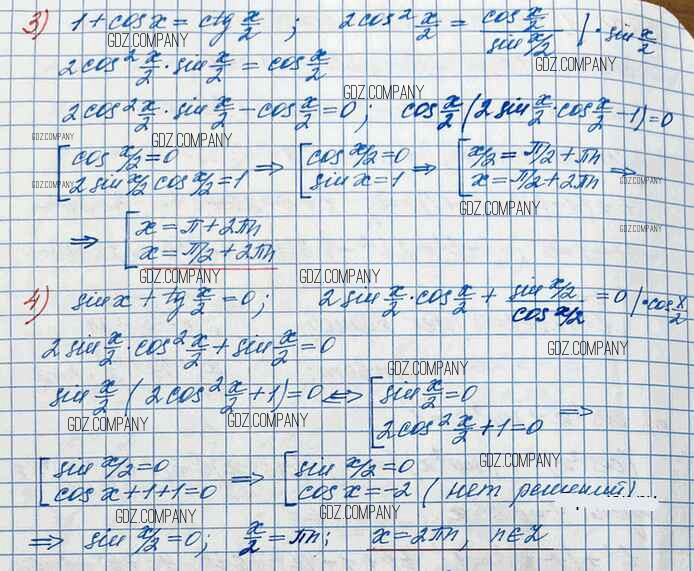 3) 1 + cos x = ctg x/2 ; 2cos² x/2 = cos x/2 / sin x/2 | · sin x/2
GDZ.COMPANY
GDZ.COMPANY
2cos² x/2 · sin x/2 = cos x/2
GDZ.COMPANY
2cos² x/2 · sin x/2 − cos x/2 = 0 ; cos x/2 (2 sin x/2 · cos x/2 − 1) = 0
GDZ.COMPANY GDZ.COMPANY GDZ.COMPANY
[ cos x/2 = 0 ⇒ [ cos x/2 = 0 ⇒ [ x/2 = π/2 + πn ⇒
2 sin x/2 cos x/2 = 1 sin x = 1 x = π/2 + 2πn
GDZ.COMPANY GDZ.COMPANY
GDZ.COMPANY GDZ.COMPANY
⇒ [ x = π + 2πn
x = π/2 + 2πn
GDZ.COMPANY GDZ.COMPANY
4) sin x + tg x/2 = 0 ; 2 sin x/2 · cos x/2 + sin x/2 / cos x/2 = 0 | · cos x/2
GDZ.COMPANY
2 sin x/2 · cos² x/2 + sin x/2 = 0
GDZ.COMPANY
sin x/2 (2cos² x/2 + 1) = 0 ⇔ [ sin x/2 = 0
2cos² x/2 + 1 = 0 ⇒
GDZ.COMPANY GDZ.COMPANY
GDZ.COMPANY
[ sin x/2 = 0 ⇒ [ sin x/2 = 0
cos x + 1 + 1 = 0 cos x = −2 (нет решений)
GDZ.COMPANY GDZ.COMPANY
⇒ sin x/2 = 0 ; x/2 = πn ; x = 2πn, n∈Z